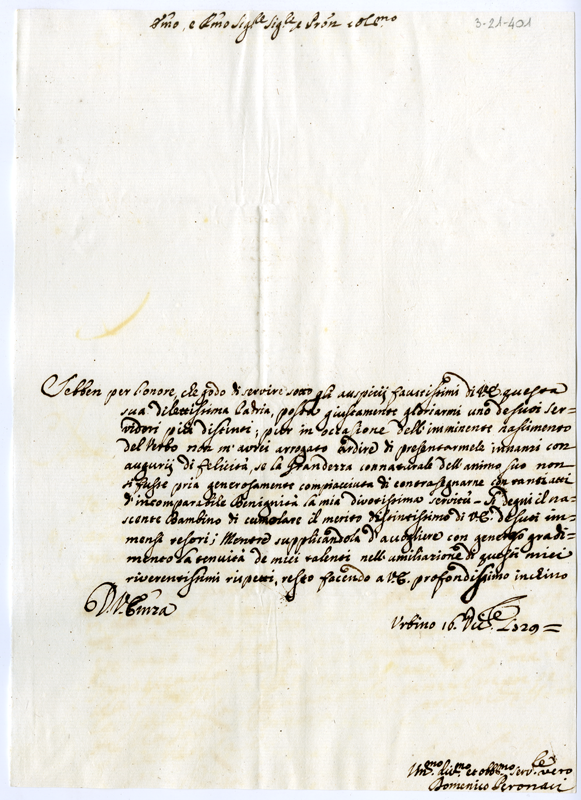 3-21-401
Emo, e Rmo Sigre Sigre e Pron Colmo
Sebben per l'onore, che godo di servire sotto gli auspicij faustissimi di V.E. questa
sua dilettissima Padria, possa giustamente gloriarmi uno de suoi ser-
vidori più distinti; pur in occasione dell'imminente nascimento
del Verbo non m'avrei arrogato ardire di presentarmele innanzi con
augurij di felicità, se la Grandezza connaturale dell'animo suo non
si fusse pria generosamente compiaciuta di contrasegnarne con tanti atti
di incomparabile Benignità la mia divotissima servitù = Si degni il na-
scente Bambino di cumolare il merito distintissimo di V.E. de suoi im-
mensi tesori; Mentre supplicandola d'accogliere con generoso gradi-
mento la tenuità de miei talenti nell'umiliazione di questi miei
riverentissimi rispetti, resto facendo a V.E. profondissimo inchino
D. V. Emza
Urbino 16. Dicbre 1729 =
Unmo divmo et obbmo servre vero
Domenico